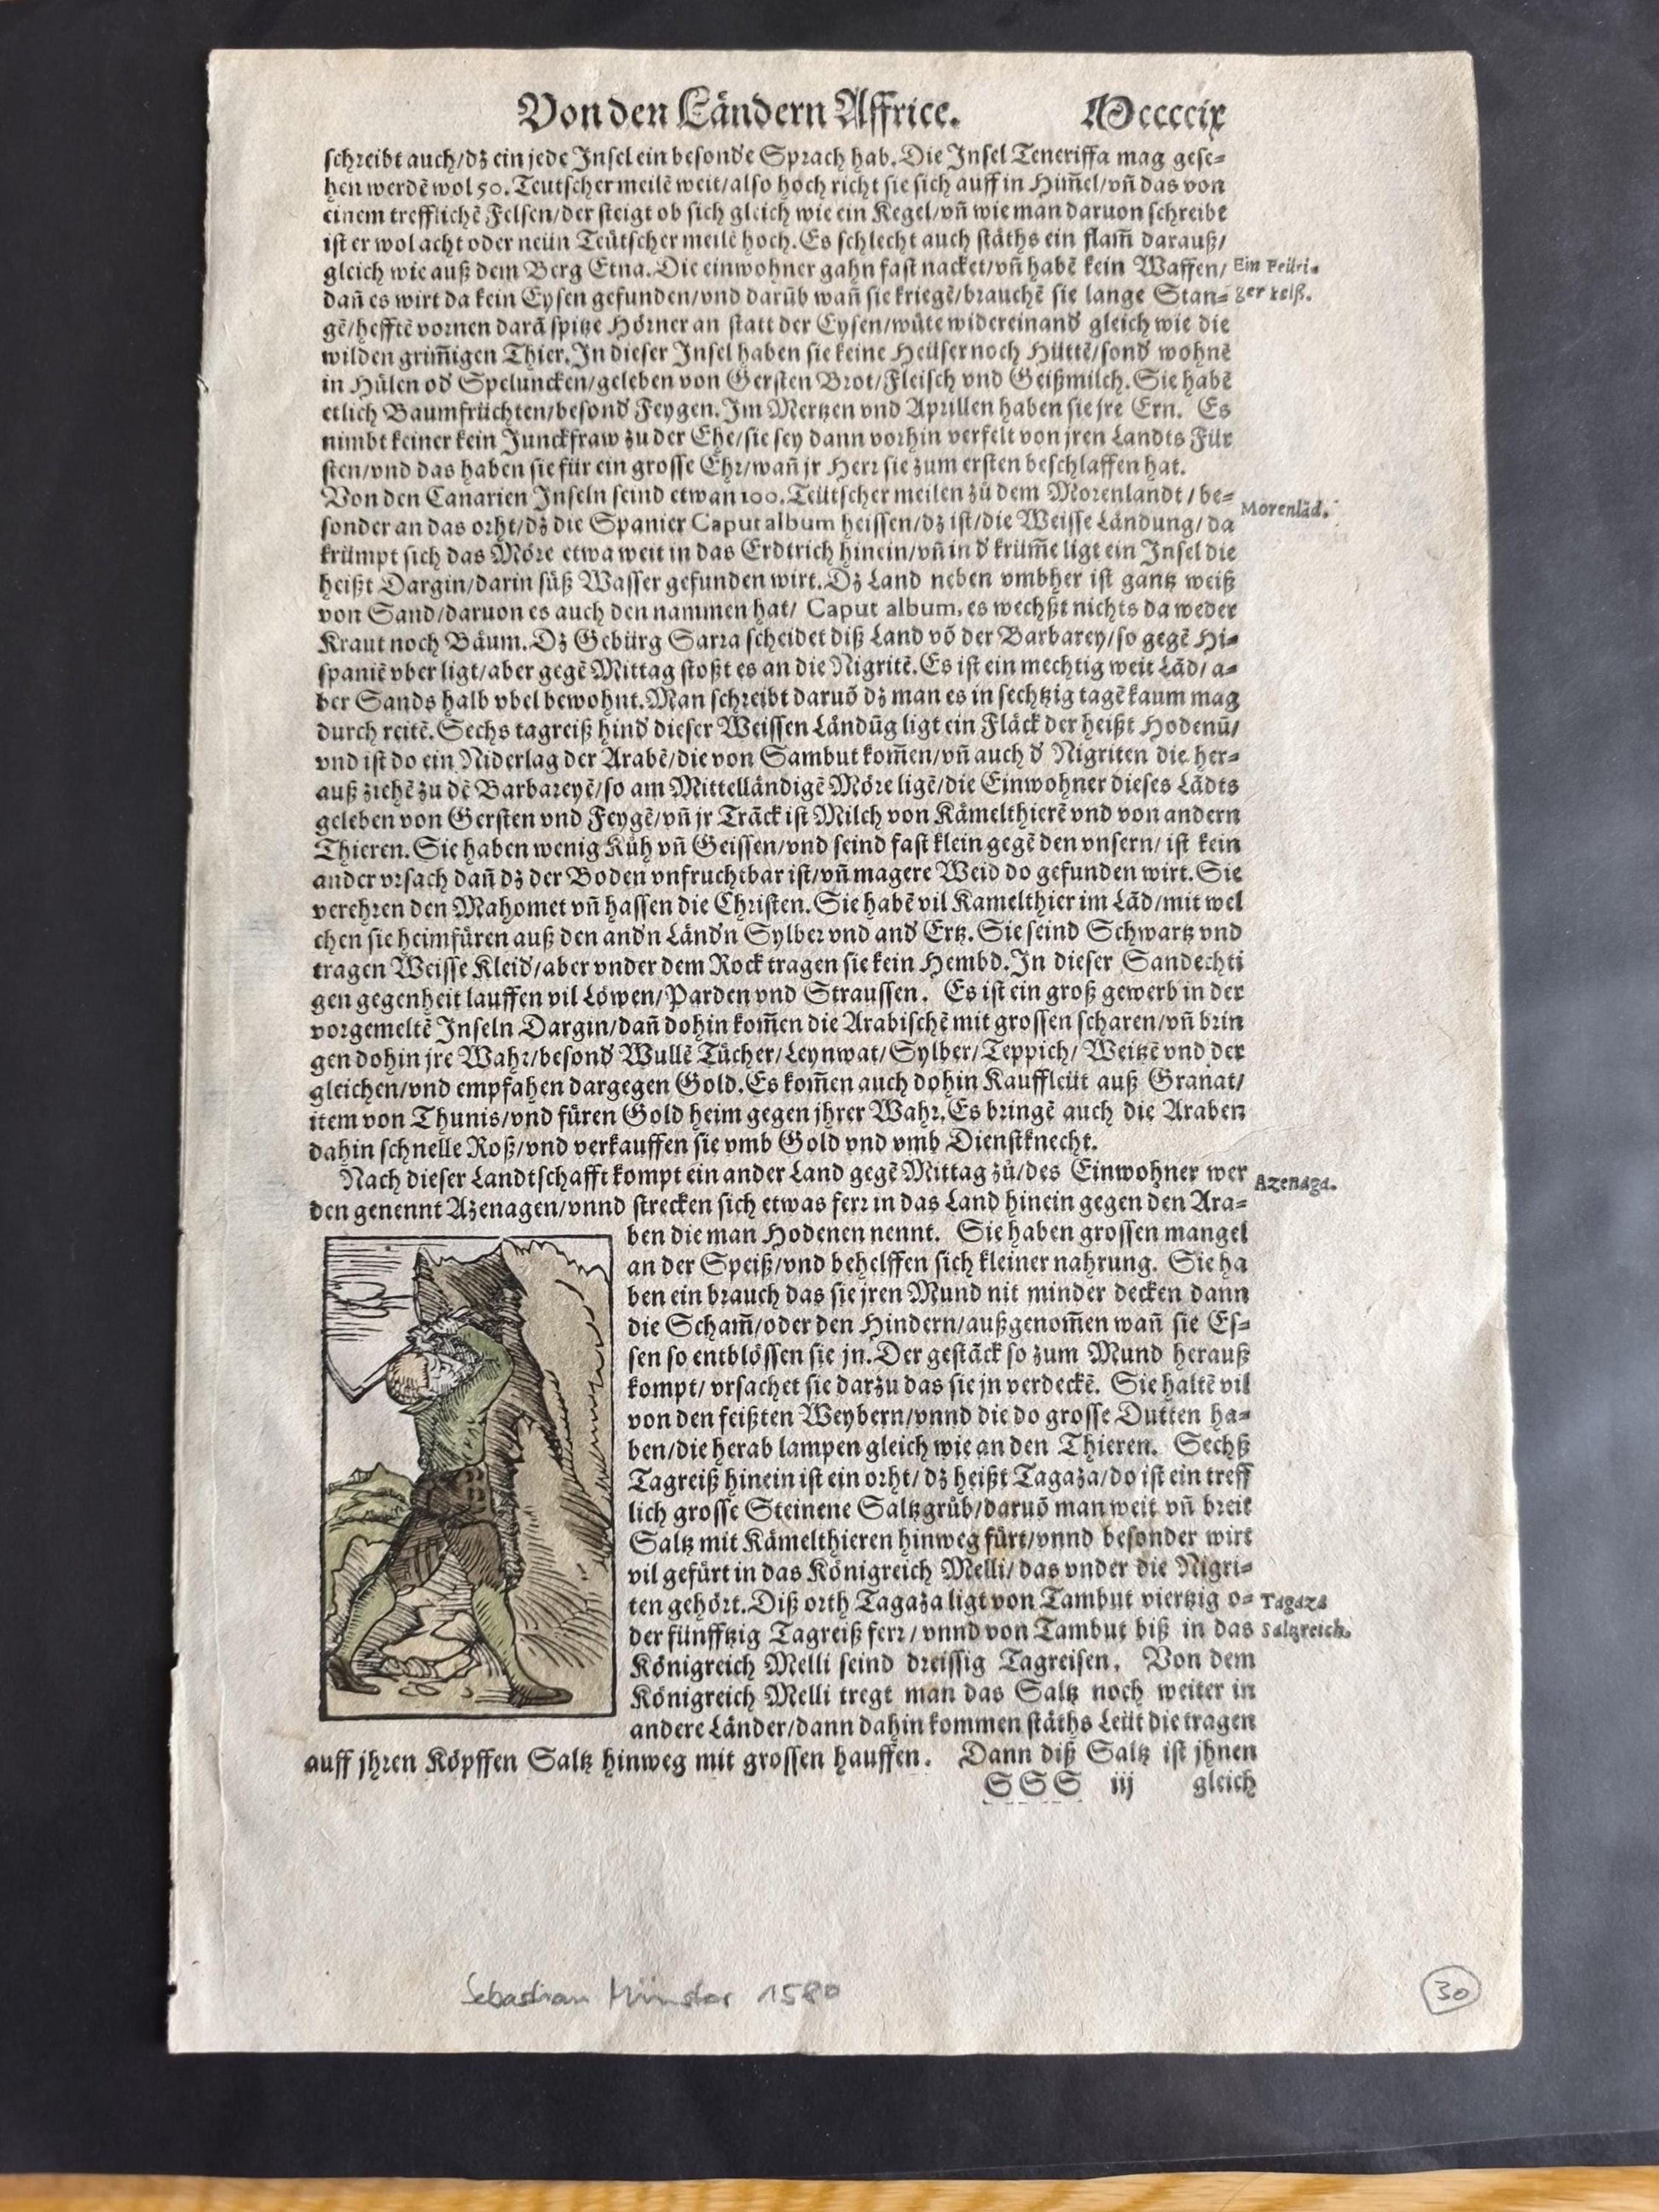 Von den Ländern Affrice. Mccccix
schreibt auch/dz ein jede Insel ein besonde Sprach hab. Die Insel Teneriffa mag gese-
hen werdē wol 50. Teutscher meilē weit/also hoch richt sie sich auff in Him̄el/vn̄ das von
einem trefflichē Felsen/der steigt ob sich gleich wie ein Kegel/vn̄ wie man daruon schreibt
ist er wol acht oder neün Teütscher meilē hoch. Es schlecht auch stäths ein flam̄ darauß/
gleich wie auß dem Berg Etna. Die einwohner gahn fast nacket/vn̄ habē kein Waffen/
Ein feüri-
ger felß.
dan̄ es wirt da kein Eysen gefunden/vnd darūb wan̄ sie kriegē/brauchē sie lange Stan-
gē/hefftē vornen darā spitze Hörner an statt der Eysen/wütē widereinand gleich wie die
wilden grim̄igen Thier. In dieser Insel haben sie keine Heüser noch Hüttē/sond wohnē
in Hülen od Speluncken/geleben von Gersten Brot/Fleisch vnd Geißmilch. Sie habē
etlich Baumfrüchten/besond Feygen. Im Mertzen vnd Aprillen haben sie jre Ern. Es
nimbt keiner kein Junckfraw zu der Ehe/sie sey dann vorhin verfelt von jren Landts Für
sten/vnd das haben sie für ein grosse Ehr/wan̄ jr Herr sie zum ersten beschlaffen hat.
Von den Canarien Inseln seind etwan 100. Teütscher meilen zů dem Morenlandt/be-
Morenlād.
sonder an das orht/dz die Spanier Caput album heissen/dz ist/die Weisse Ländung/da
krümpt sich das Möre etwa weit in das Erdtrich hinein/vn̄ in d krüm̄e ligt ein Insel die
heißt Dargin/darin süß Wasser gefunden wirt. Dz Land neben vmbher ist gantz weiß
von Sand/daruon es auch den nammen hat/ Caput album, es wechßt nichts da weder
Kraut noch Bäum. Dz Gebürg Sarra scheidet diß Land vō der Barbarey/so gegē Hi-
spaniē vber ligt/aber gegē Mittag stoßt es an die Nigritē. Es ist ein mechtig weit Lād/a-
ber Sands halb vbel bewohnt. Man schreibt daruō dz man es in sechtzig tagē kaum mag
durch reitē. Sechs tagreiß hind dieser Weissen Ländūg ligt ein Fläck der heißt Hodenū/
vnd ist do ein Niderlag der Arabē/die von Sambut kom̄en/vn̄ auch d Nigriten die her-
auß ziehē zu dē Barbareyē/so am Mittelländigē Möre ligē/die Einwohner dieses Lādts
geleben von Gersten vnd Feygē/vn̄ jr Trāck ist Milch von Kämelthierē vnd von andern
Thieren. Sie haben wenig Küh vn̄ Geissen/vnd seind fast klein gegē den vnsern/ ist kein
ander vrsach dan̄ dz der Boden vnfruchtbar ist/vn̄ magere Weid do gefunden wirt. Sie
verehren den Mahomet vn̄ hassen die Christen. Sie habē vil Kamelthier im Lād/mit wel
chen sie heimfüren auß den andn Ländn Sylber vnd and Ertz. Sie seind Schwartz vnd
tragen Weisse Kleid/aber vnder dem Rock tragen sie kein Hembd. In dieser Sandechti
gen gegenheit lauffen vil Löwen/Parden vnd Straussen. Es ist ein groß gewerb in der
vorgemeltē Inseln Dargin/dan̄ dohin kom̄en die Arabischē mit grossen scharen/vn̄ brin
gen dohin jre Wahr/besond Wullē Tücher/Leynwat/Sylber/Teppich/ Weitzē vnd der
gleichen/vnd empfahen dargegen Gold. Es kom̄en auch dohin Kauffleüt auß Granat/
item von Thunis/vnd füren Gold heim gegen jhrer Wahr. Es bringē auch die Araben
dahin schnelle Roß/vnd verkauffen sie vmb Gold vnd vmb Dienstknecht.
Nach dieser Landtschafft kompt ein ander Land gegē Mittag zů/des Einwohner wer
Azenaga.
den genennt Azenagen/vnnd strecken sich etwas ferr in das Land hinein gegen den Ara-
ben die man Hodenen nennt. Sie haben grossen mangel
an der Speiß/vnd behelffen sich kleiner nahrung. Sie ha
ben ein brauch das sie jren Mund nit minder decken dann
die Scham̄/oder den Hindern/außgenom̄en wan̄ sie Es-
sen so entblössen sie jn. Der gestāck so zum Mund herauß
kompt/ vrsachet sie darzu das sie jn verdeckē. Sie haltē vil
von den feißten Weybern/vnnd die do grosse Dutten ha-
ben/die herab lampen gleich wie an den Thieren. Sechß
Tagreiß hinein ist ein orht/ dz heißt Tagaza/do ist ein treff
lich grosse Steinene Saltzgrůb/daruō man weit vn̄ breit
Saltz mit Kämelthieren hinweg fürt/vnnd besonder wirt
vil gefürt in das Königreich Melli/das vnder die Nigri-
ten gehört. Diß orth Tagaza ligt von Tambut viertzig o-
Tagaza
Saltzreich.
der fünfftzig Tagreiß ferr/ vnnd von Tambut biß in das
Königreich Melli seind dreissig Tagreisen. Von dem
Königreich Melli tregt man das Saltz noch weiter in
andere Länder/dann dahin kommen stäths Leüt die tragen
auff jhren Köpffen Saltz hinweg mit grossen hauffen. Dann diß Saltz ist jhnen
SSS iij gleich
Sebastian Münster 1580
30